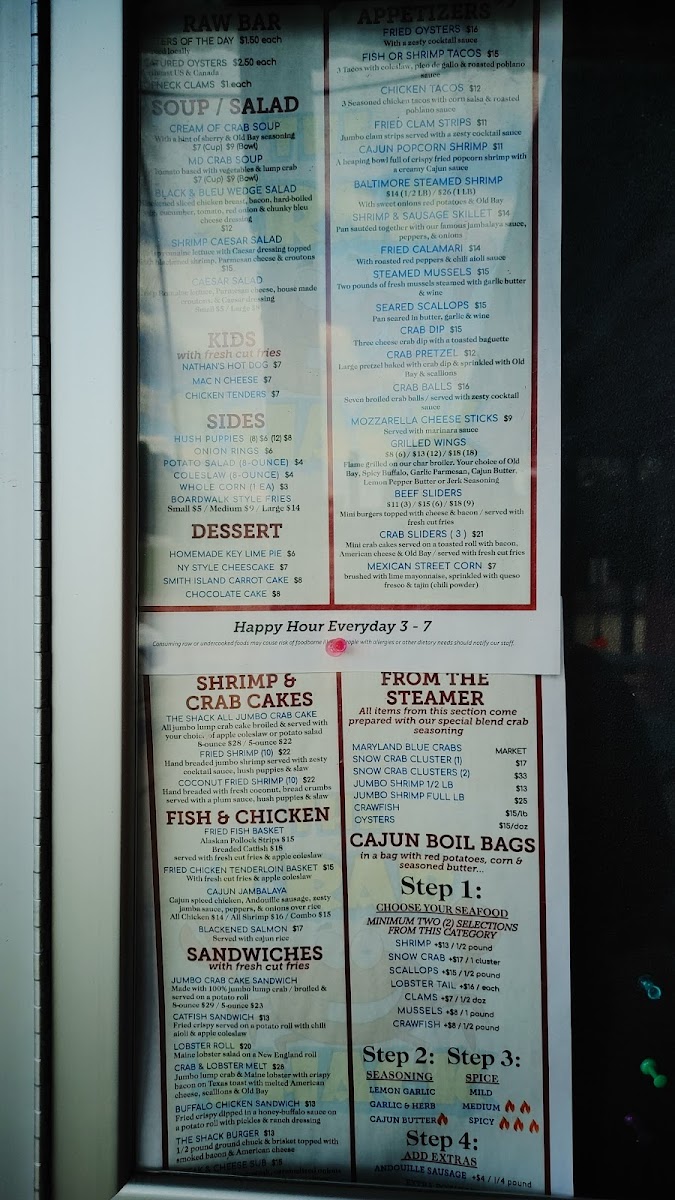 RAW BAR
OF THE DAY $1.50 each
OYSTERS $2.50 each
US & Canada
CLAMS $1 each
SOUP / SALAD
CREAM OF CRAB SOUP
With a hint of sherry & Old Bay seasoning
$7 (Cup) $9 (Bowl)
MD CRAB SOUP
Tomato based with vegetables & lump crab
$7 (Cup) $9 (Bowl)
BLACK & BLEU WEDGE SALAD
sliced chicken breast, bacon, hard-boiled
cucumber, tomato, red onion & chunky bleu
cheese dressing
$12
SHRIMP CAESAR SALAD
romaine lettuce with Caesar dressing topped
with blackened shrimp, Parmesan cheese & croutons
$15
CAESAR SALAD
lettuce, Parmesan cheese, house made
croutons, & Caesar dressing
Small $5 / Large $9
KIDS
with fresh cut fries
NATHAN'S HOT DOG $7
MAC N CHEESE $7
CHICKEN TENDERS $7
SIDES
HUSH PUPPIES (6) $6 (12) $8
ONION RINGS $6
POTATO SALAD (8-OUNCE) $4
COLESLAW (8-OUNCE) $4
WHOLE CORN (1 EA) $3
BOARDWALK STYLE FRIES
Small $5 / Medium $9 / Large $14
DESSERT
HOMEMADE KEY LIME PIE $6
NY STYLE CHEESCAKE $7
SMITH ISLAND CARROT CAKE $8
CHOCOLATE CAKE $8
APPETIZERS
FRIED OYSTERS $16
With a zesty cocktail sauce
FISH OR SHRIMP TACOS $15
3 Tacos with coleslaw, pico de gallo & roasted poblano
sauce
CHICKEN TACOS $12
3 Seasoned chicken tacos with corn salsa & roasted
poblano sauce
FRIED CLAM STRIPS $11
Jumbo clam strips served with a zesty cocktail sauce
CAJUN POPCORN SHRIMP $11
A heaping bowl full of crispy fried popcorn shrimp with
a creamy Cajun sauce
BALTIMORE STEAMED SHRIMP
$14 (1/2 LB) / $26 (1 LB)
With sweet onions red potatoes & Old Bay
SHRIMP & SAUSAGE SKILLET $14
Pan sautéed together with our famous jambalaya sauce,
peppers, & onions
FRIED CALAMARI $14
With roasted red peppers & chili aioli sauce
STEAMED MUSSELS $15
Two pounds of fresh mussels steamed with garlic butter
& wine
SEARED SCALLOPS $15
Pan seared in butter, garlic & wine
CRAB DIP $15
Three cheese crab dip with a toasted baguette
CRAB PRETZEL $12
Large pretzel baked with crab dip & sprinkled with Old
Bay & scallions
CRAB BALLS $16
Seven broiled crab balls / served with zesty cocktail
sauce
MOZZARELLA CHEESE STICKS $9
Served with marinara sauce
GRILLED WINGS
$8 (6) / $13 (12) / $18 (18)
Flame grilled on our char broiler. Your choice of Old
Bay, Spicy Buffalo, Garlic Parmesan, Cajun Butter,
Lemon Pepper Butter or Jerk Seasoning
BEEF SLIDERS
$11 (3) / $15 (6) / $18 (9)
Mini burgers topped with cheese & bacon / served with
fresh cut fries
CRAB SLIDERS ( 3 ) $21
Mini crab cakes served on a toasted roll with bacon,
American cheese & Old Bay / served with fresh cut fries
MEXICAN STREET CORN $7
brushed with lime mayonnaise, sprinkled with queso
fresco & tajin (chili powder)
Happy Hour Everyday 3 - 7
Consuming raw or undercooked foods may cause risk of foodborne people with allergies or other dietary needs should notify our staff.
SHRIMP &
CRAB CAKES
THE SHACK ALL JUMBO CRAB CAKE
All jumbo lump crab cake broiled & served with
your choice of apple coleslaw or potato salad
8-ounce $28 / 5-ounce $22
FRIED SHRIMP (10) $22
Hand breaded jumbo shrimp served with zesty
cocktail sauce, hush puppies & slaw
COCONUT FRIED SHRIMP (10) $22
Hand breaded with fresh coconut, bread crumbs
served with a plum sauce, hush puppies & slaw
FISH & CHICKEN
FRIED FISH BASKET
Alaskan Pollock Strips $15
Breaded Catfish $18
served with fresh cut fries & apple coleslaw
FRIED CHICKEN TENDERLOIN BASKET $15
With fresh cut fries & apple coleslaw
CAJUN JAMBALAYA
Cajun spiced chicken, Andouille sausage, zesty
jamba sauce, peppers, & onions over rice
All Chicken $14 / All Shrimp $16 / Combo $15
BLACKENED SALMON $17
Served with cajun rice
SANDWICHES
with fresh cut fries
JUMBO CRAB CAKE SANDWICH
Made with 100% jumbo lump crab / broiled &
served on a potato roll
8-ounce $29 / 5-ounce $23
CATFISH SANDWICH $13
Fried crispy served on a potato roll with chili
aioli & apple coleslaw
LOBSTER ROLL $20
Maine lobster salad on a New England roll
CRAB & LOBSTER MELT $28
Jumbo lump crab & Maine lobster with crispy
bacon on Texas toast with melted American
cheese, scallions & Old Bay
BUFFALO CHICKEN SANDWICH $13
Fried crispy dipped in a honey-buffalo sauce on
a potato roll with pickles & ranch dressing
THE SHACK BURGER $13
1/2 pound ground chuck & brisket topped with
smoked bacon & American cheese
& CHEESE SUB $15
FROM THE
STEAMER
All items from this section come
prepared with our special blend crab
seasoning
MARYLAND BLUE CRABS MARKET
SNOW CRAB CLUSTER (1) $17
SNOW CRAB CLUSTERS (2) $33
JUMBO SHRIMP 1/2 LB $13
JUMBO SHRIMP FULL LB $25
CRAWFISH $15/lb
OYSTERS $15/doz
CAJUN BOIL BAGS
in a bag with red potatoes, corn &
seasoned butter...
Step 1:
CHOOSE YOUR SEAFOOD
MINIMUM TWO (2) SELECTIONS
FROM THIS CATEGORY
SHRIMP +$13 / 1/2 pound
SNOW CRAB +$17 / 1 cluster
SCALLOPS +$15 / 1/2 pound
LOBSTER TAIL +$16 / each
CLAMS +$7 / 1/2 doz
MUSSELS +$8 / 1 pound
CRAWFISH +$8 / 1/2 pound
Step 2: Step 3:
SEASONING SPICE
LEMON GARLIC MILD
GARLIC & HERB MEDIUM
CAJUN BUTTER SPICY
Step 4:
ADD EXTRAS
ANDOUILLE SAUSAGE +$4 / 1/4 pound